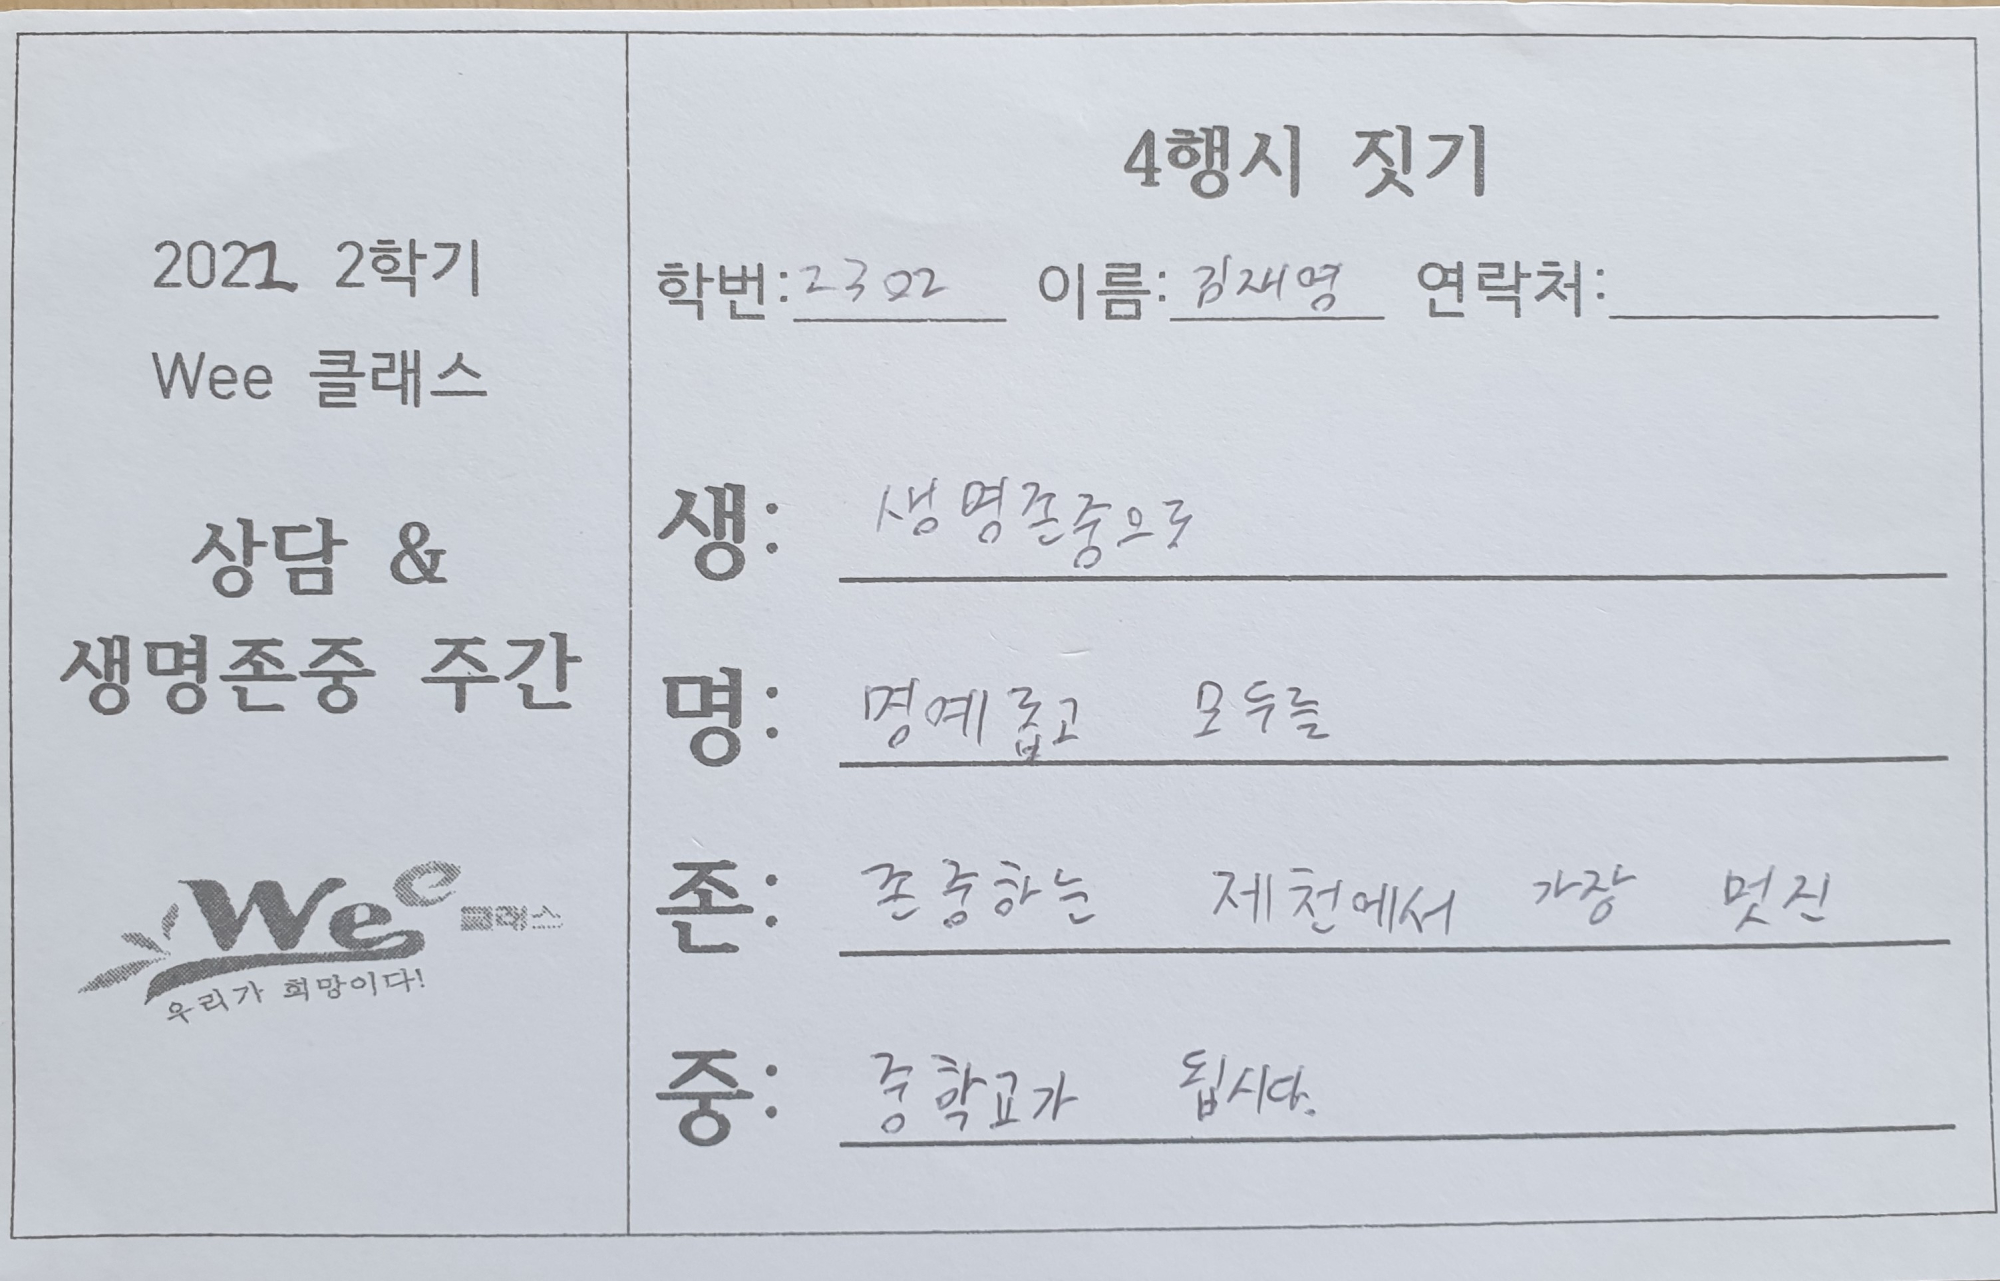 2021 2학기
Wee 클래스
상담 &
생명존중 주간
Wee 클래스
우리가 희망이다!
4행시 짓기
학번: 2302 이름: 김재영 연락처:
생: 생명존중으로
명: 명예롭고 모두를
존: 존중하는 제천에서 가장 멋진
중: 중학교가 됩시다.